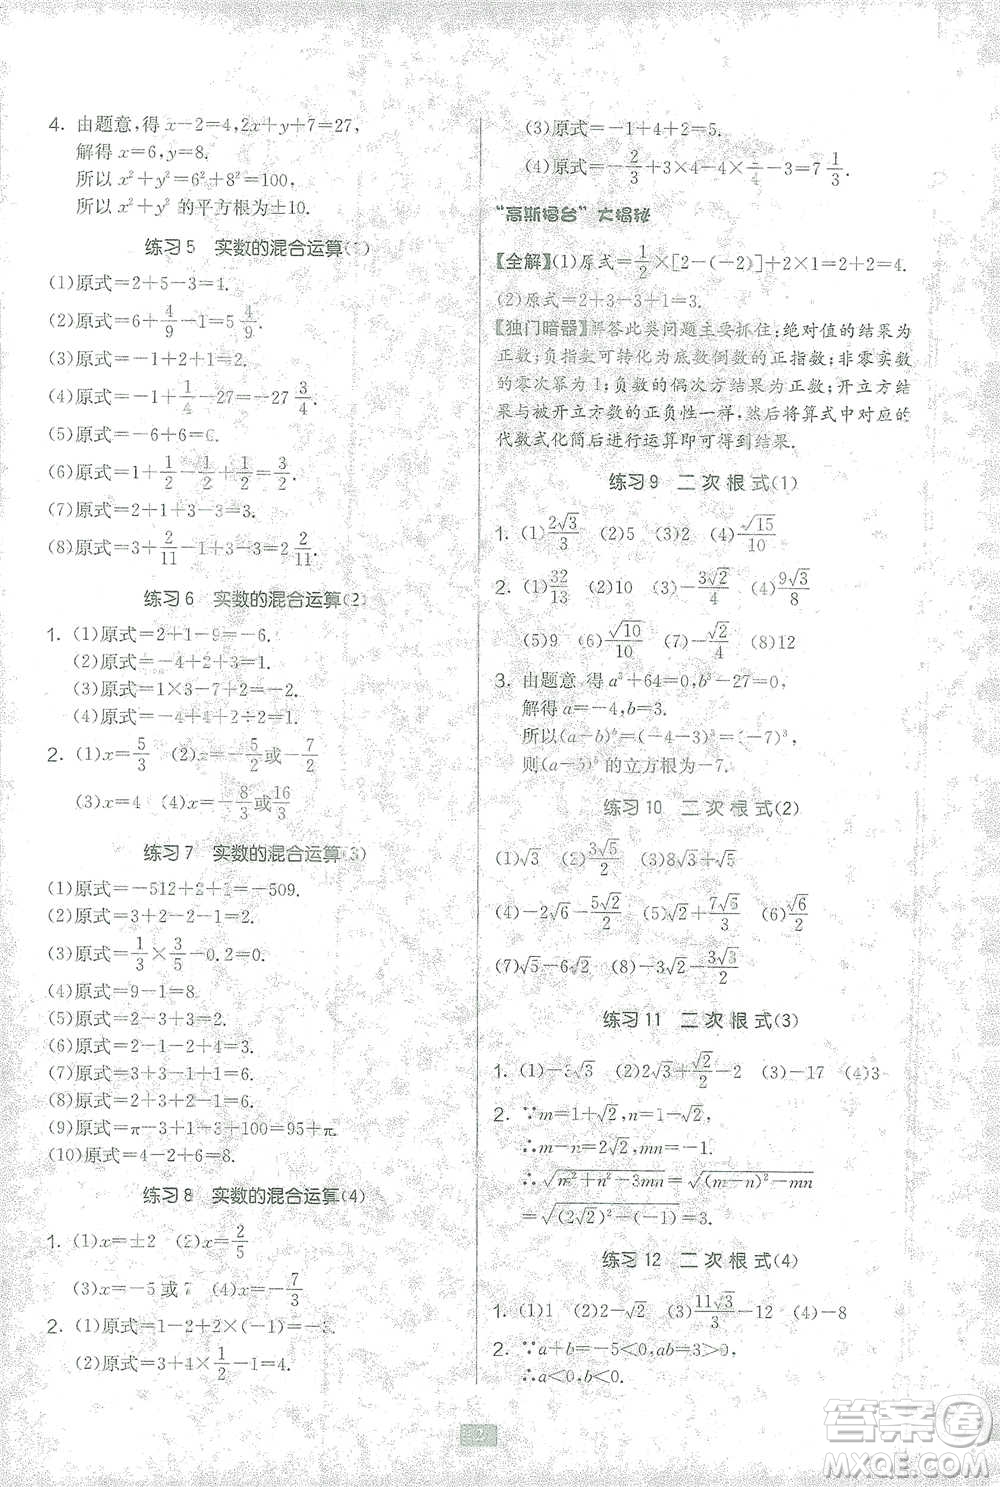 4. 由题意,得 x-2=4,2x+y+7=27,
解得 x=6,y=8.
所以 x²+y²=6²+8²=100,
所以 x²+y² 的平方根为±10.
练习 5 实数的混合运算(1)
(1)原式=2+5-3=4.
(2)原式=6+4/9-1=5 4/9.
(3)原式=2+2-2=2.
(4)原式=-1+1/4-27=-27 3/4.
(5)原式=-6+6=0.
(6)原式=1+1/2-1/2+1/2=1 1/2.
(7)原式=2+1+3-3=3.
(8)原式=3+2/11-1+3-3=2 2/11.
练习 6 实数的混合运算(2)
1. (1)原式=2+1-9=-6.
(2)原式=-4+2+3=1.
(3)原式=1×3-7+2=-2.
(4)原式=-4+4+2÷2=1.
2. (1)x=5/3 (2)x=-5/2或-7/2
(3)x=4 (4)x=-8/3或16/3
练习 7 实数的混合运算(3)
(1)原式=-512+2+1=-509.
(2)原式=3+2-2-1=2.
(3)原式=1/3×3/5-0.2=0.
(4)原式=9-1=8
(5)原式=2-3+3=2.
(6)原式=
(7)原式=
(8)原式=
(9)原式=π-3+1-3+100=95+π.
(10)原式=4-2+6=8.
练习 8 实数的混合运算(4)
1. (1)x=±2 (2)x=2/5
(3)x=-5 或 7 (4)x=-7/3
2. (1)原式=
(2)原式=3+4×1/2-1=4.
(3)原式=-1+4+2=5.
(4)原式=-2/3+3×4-4× -3=7 1/3.
“高斯擂台”大揭秘
【全解】(1)原式=1/2×[2-(-2)]+2×1=2+2=4.
(2)原式=2+3-3+1=3.
【独门暗器】解答此类问题主要抓住:绝对值的结果为
正数;负指数可转化为底数倒数的正指数;非零实数
的零次幂为 1;负数的偶次方结果为正数;开立方结
果与被开立方数的正负性一样,然后将算式中对应的
代数式化简后进行运算即可得到结果.
练习 9 二 次 根 式(1)
1. (1)2√3/3 (2)5 (3)2 (4)-√15/10
2. (1)32/13 (2)10 (3)-3√2/4 (4)9√3/8
(5)9 (6)√10/10 (7)-√2/4 (8)12
3. 由题意 得 a³+64=0,b³-27=0,
解得 a=-4,b=3.
所以(a-b)=(-4-3)³=(-7)³,
则 的立方根为-7.
练习 10 二 次 根 式(2)
(1)√3 (2)3√5/2 (3)8√3+√5
(4)-2√6-5√2/2 (5)2+ (6)√6/2
(7)√5-2√5 (8)-3√2-
练习 11 二 次 根 式(3)
1. (1)-3√3 (2)2√3+√2/2-2 (3)-17 (4)3
2. ∵m=1+√2,n=1-√2,
∴m-n=2√2,mn=-1.
∴√(m²+n²-3mn)=√((m-n)²-mn)
=√((2√2)²-(-1))=3.
练习 12 二 次 根 式(4)
1. (1)1 (2)2-√2 (3)11√3/3-12 (4)-8
2. ∵a+b=-5<0,ab=3>0,
∴a<0,b<0.
2
答案圈
MXQE.COM